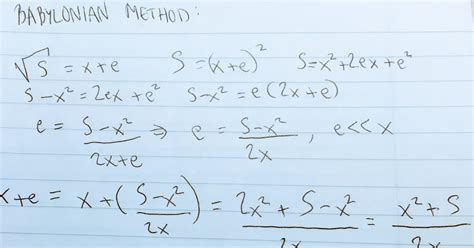 BABYLONIAN METHOD:
√S = x+e   S=(x+e)²   S=x²+2ex+e²
S-x²=2ex+e²   S-x²=e(2x+e)
e = (S-x²)/(2x+e) ⇒ e = (S-x²)/(2x), e<<x
x+e = x+((S-x²)/(2x)) = (2x²+S-x²)/(2x) = (x²+S)/(2x)